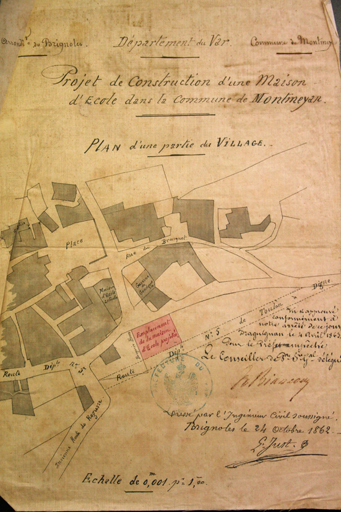 Arrond.t de Brignoles
Département du Var
Commune de Montmeyan
Projet de Construction d'une Maison
d'Ecole dans la Commune de Montmeyan.
PLAN d'une partie du VILLAGE.
Place
Rue du
Maison
d'Ecole
Emplacement
de la Maison
d'Ecole projetée
Route Dép.le N.° 5 de Toulon à Digne
Route
Vu et approuvé
conformément à
notre arrêté de ce jour
Draguignan le 2 Avril 1863
Pour le Préfet
Le Conseiller de P.re Gé.l délégué
Dressé par l'Ingénieur Civil soussigné.
Brignoles le 24 Octobre 1862.
Echelle de 0,001 p. 1,00.